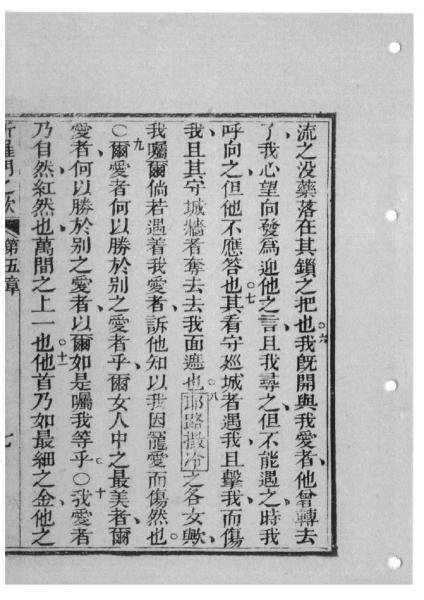 流之没藥落在其鎖之把也。六我旣開與我愛者、他曾轉去
了、我心望向發爲迎他之言、且我尋之、但不能遇之、時我
呼向之、但他不應答也。七其看守廵城者遇我、且擊我而傷
我、且其守城墻者奪去去我面遮也。八耶路撒冷之各女歟、
我囑爾倘若遇着我愛者、訴他知以我因寵愛而傷然也。
九○爾愛者何以勝於別之愛者乎、爾女人中之最美者、爾
愛者何以勝於別之愛者、以爾如是囑我等乎。十○我愛者
乃自然紅然也、萬間之上一也。十一他首乃如最細之金、他之
所羅門之歌 第五章 七